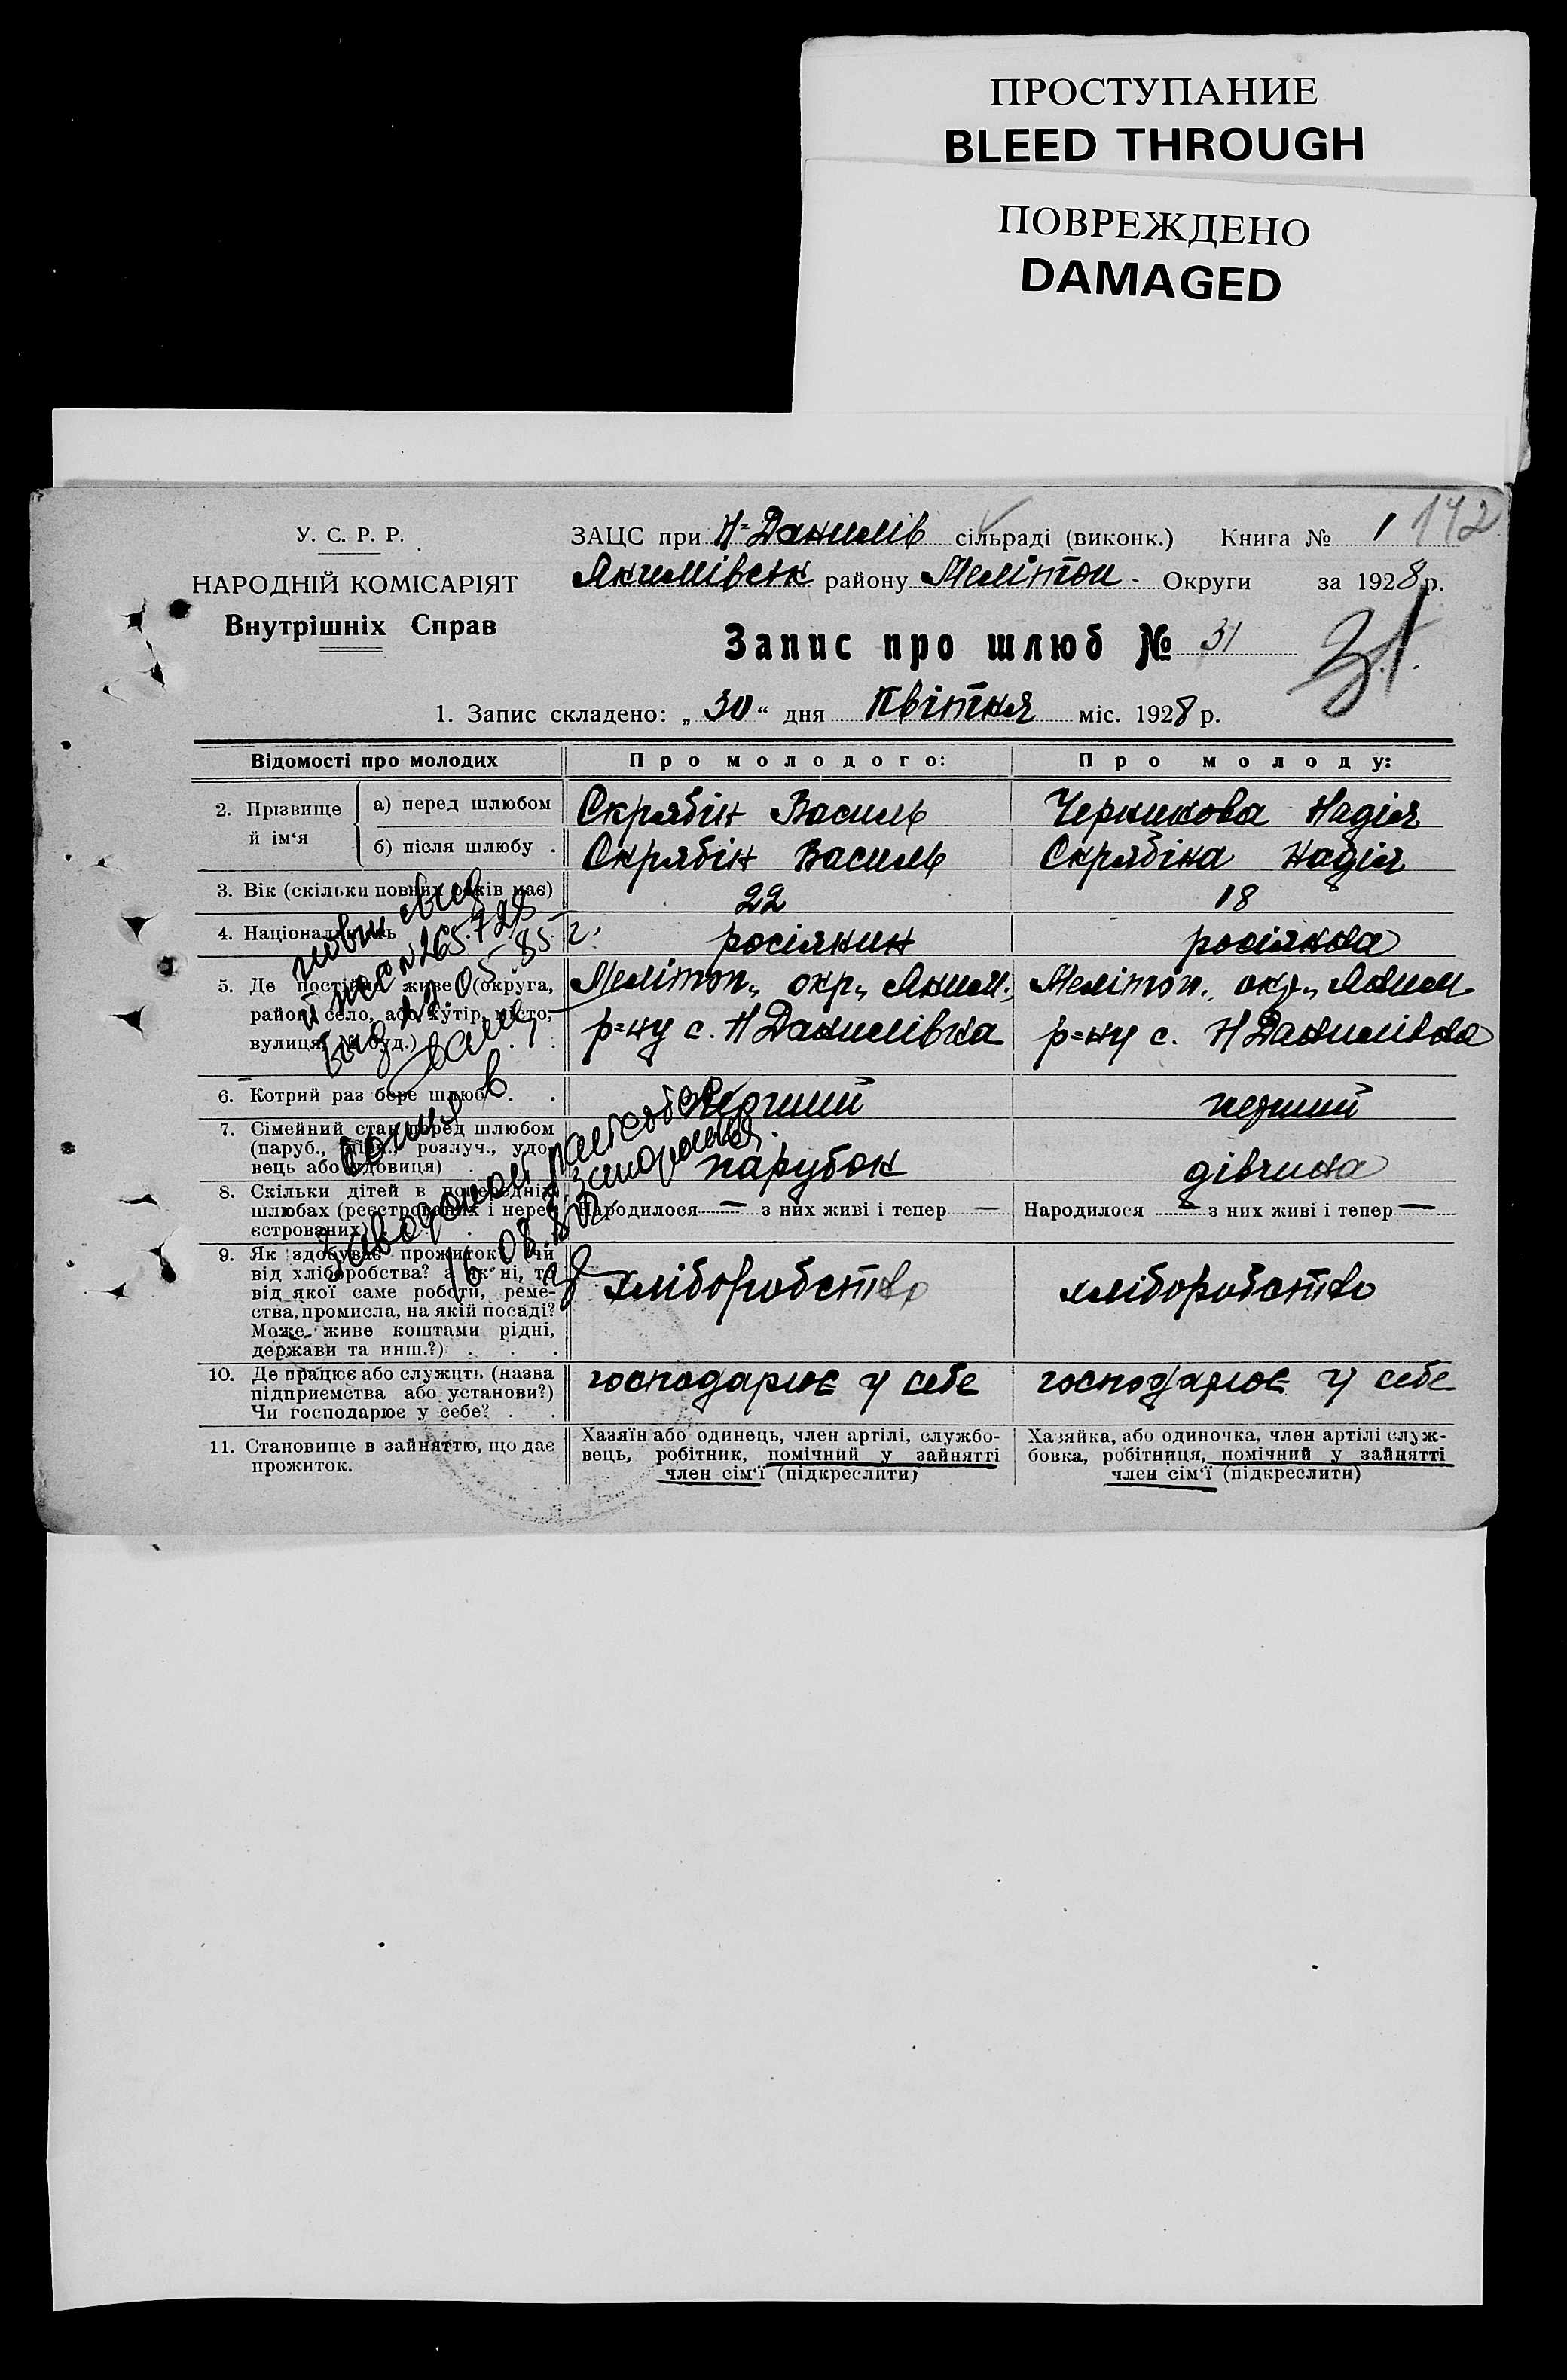 ПРОСТУПАНИЕ
BLEED THROUGH
ПОВРЕЖДЕНО
DAMAGED
У. С. Р. Р.
НАРОДНІЙ КОМІСАРІЯТ
Внутрішніх Справ
ЗАЦС при Н-Данилів сільраді (виконк.) Книга № 1 142
Якимівськ району Мелітоп - Округи за 1928 р.
Запис про шлюб № 31
31
1. Запис складено: „30" дня Квітня міс. 1928 р.
Відомості про молодих Про молодого: Про молоду:
2. Прізвище й ім'я
а) перед шлюбом Скрябін Василь Черникова Надія
б) після шлюбу . Скрябін Василь Скрябіна Надія
3. Вік (скільки повних років має) 22 18
4. Національність росіянин росіянка
5. Де постійно живе (округа, район, село, або хутір, місто, вулиця, № буд.)
Мелітоп., окр., Яким. Мелітоп., окр., Яким
р-ну с. Н Данилівка р-ну с. Н Данилівка
6. Котрий раз бере шлюб . . перший перший
7. Сімейний стан перед шлюбом
(паруб., дівч., розлуч., удо-
вець або удовиця) парубок дівчина
8. Скільки дітей в попередніх
шлюбах (реєстрованих і нере-
єстрованих) Народилося — з них живі і тепер — Народилося — з них живі і тепер —
9. Як здобуває прожиток (чи
від хліборобства? а як ні, то
від якої саме роботи, реме-
ства, промисла, на якій посаді?
Може живе коштами рідні,
держави та инш.?) . . . хліборобство хліборобство
10. Де працює або служить (назва
підприємства або установи?)
Чи господарює у себе? . . господарює у себе господарює у себе
11. Становище в зайняттю, що дає
прожиток.
Хазяїн або одинець, член артілі, службо-
вець, робітник, помічний у зайнятті
член сім'ї (підкреслити)
Хазяйка, або одиночка, член артілі служ-
бовка, робітниця, помічний у зайнятті
член сім'ї (підкреслити)